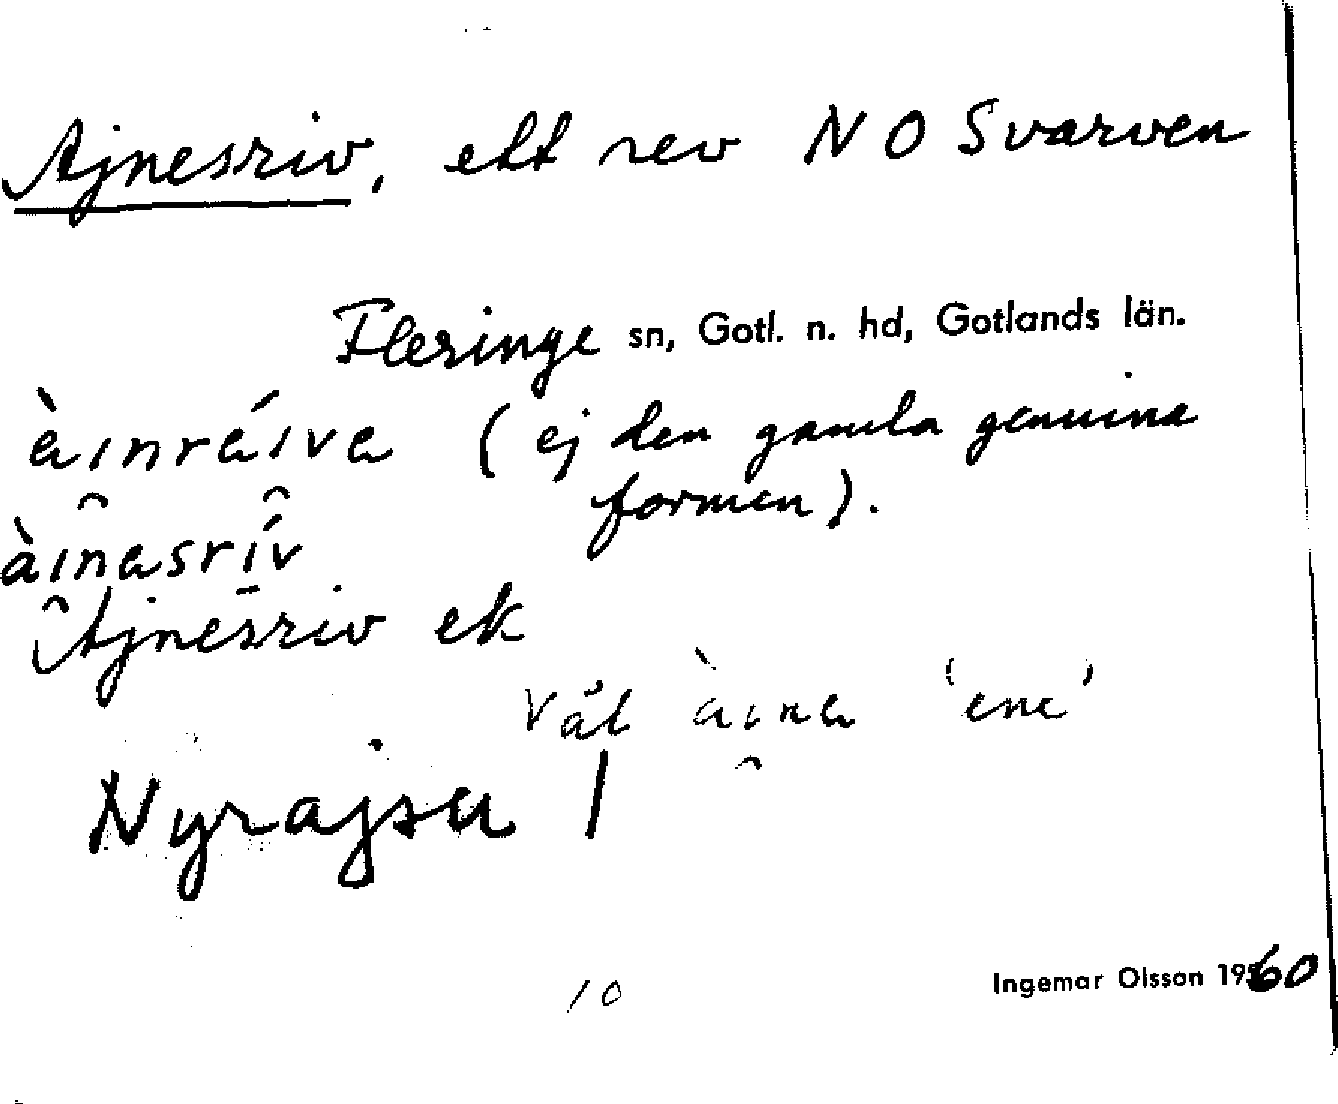 Ajnesriv, ett rev NO Svarven
Fleringe sn, Gotl. n. hd, Gotlands län.
àinráiva (ej den gamla genuina
formen).
àinasrív
Ajnesriv ek
Väl àina 'ene'
Nyrajsu /
10
Ingemar Olsson 1960